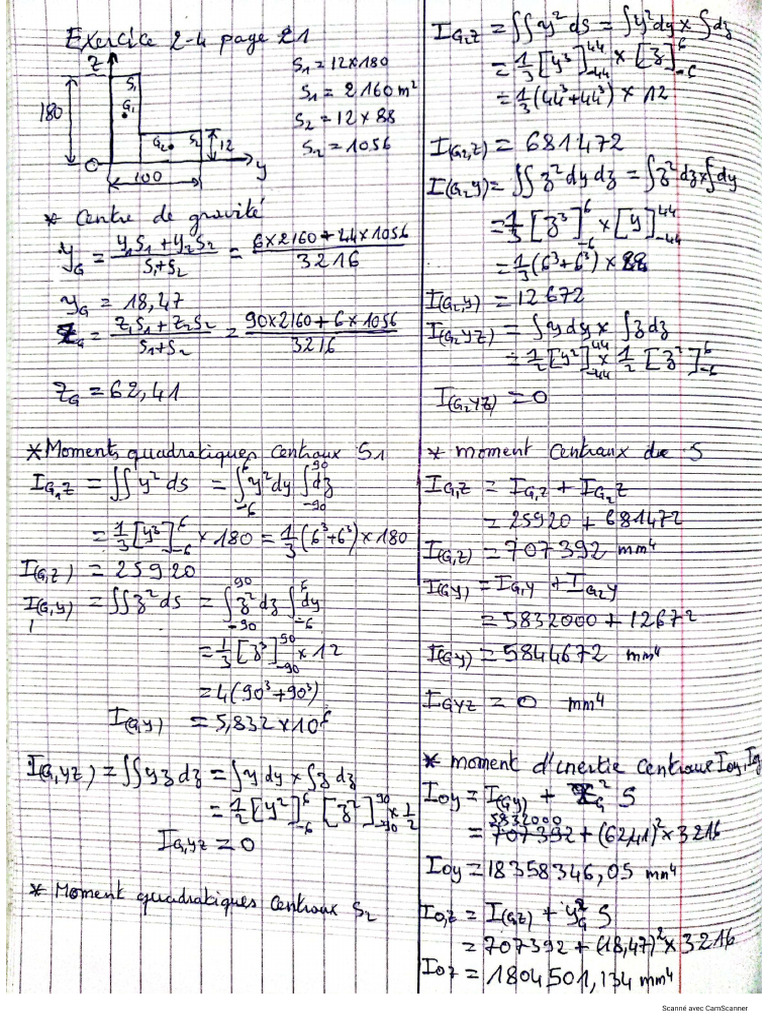 Exercice 2-4 page 21
Z
S1
G1
180
G2
S2
12
O
y
100
S1 = 12×180
S1 = 2160 m²
S2 = 12×88
S2 = 1056
* Centre de gravité
yG = (y1S1 + y2S2)/(S1+S2) = (6×2160 + 44×1056)/3216
yG = 18,47
ZG = (Z1S1 + Z2S2)/(S1+S2) = (90×2160 + 6×1056)/3216
ZG = 62,41
* Moments quadratiques Centraux S1
IG1Z = ∫∫ y² ds = ∫_{-6}^{6} y² dy ∫_{-90}^{90} dz
= 1/3 [y³]_{-6}^{6} × 180 = 1/3 (6³+6³) × 180
I(G1Z) = 25920
I(G1y) = ∫∫ z² ds = ∫_{-90}^{90} z² dz ∫_{-6}^{6} dy
= 1/3 [z³]_{-90}^{90} × 12
= 4(90³+90³)
I(G1y) = 5,832×10⁶
I(G1yz) = ∫∫ yz dz = ∫ y dy × ∫ z dz
= 1/2 [y²]_{-6}^{6} [z²]_{-90}^{90} × 1/2
IG1yz = 0
* Moment quadratiques Centraux S2
IG2Z = ∫∫ y² ds = ∫ y² dy × ∫ dz
= 1/3 [y³]_{-44}^{44} × [z]_{-6}^{6}
= 1/3 (44³+44³) × 12
I(G2,Z) = 681472
I(G2y) = ∫∫ z² dy dz = ∫ z² dz × ∫ dy
= 1/3 [z³]_{-6}^{6} × [y]_{-44}^{44}
= 1/3 (6³+6³) × 88
I(G2,y) = 12672
I(G2yz) = ∫ y dy × ∫ z dz
= 1/2 [y²]_{-44}^{44} × 1/2 [z²]_{-6}^{6}
I(G2yz) = 0
* moment Centraux de S
IG,Z = IG1Z + IG2Z
= 25920 + 681472
I(G,Z) = 707392 mm⁴
I(Gy) = IG1y + IG2y
= 5832000 + 12672
I(Gy) = 5844672 mm⁴
IGyz = 0 mm⁴
* moment d'inertie Centraux Ioy, Io
Ioy = I(Gy) + ZG² S
5832000
= 707392 + (62,41)² × 3216
Ioy = 18358346,05 mm⁴
Io,z = I(GZ) + yG² S
= 707392 + (18,47)² × 3216
Ioz = 1804501,134 mm⁴
Scanné avec CamScanner